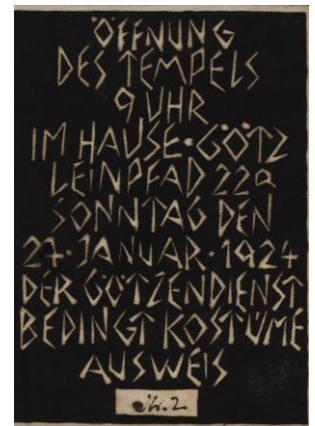 ÖFFNUNG
DES TEMPELS
9 UHR
IM HAUSE·GÖTZ
LEINPFAD 22a
SONNTAG DEN
27·JANUAR·1924
DER GÖTZENDIENST
BEDINGT KOSTÜME
AUSWEIS
Nr. 2